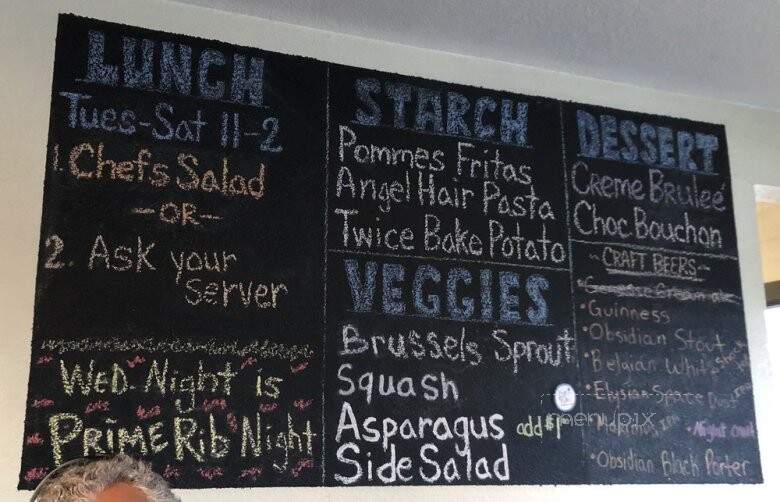 LUNCH
Tues-Sat 11-2
1. Chefs Salad
-OR-
2. Ask your
server
WED. Night is
PRIME Rib Night
STARCH
Pommes Fritas
Angel Hair Pasta
Twice Bake Potato
VEGGIES
Brussels Sprout
Squash
Asparagus add $1
Side Salad
DESSERT
Creme Bruleé
Choc Bouchon
-CRAFT BEERS-
•Guinness
•Obsidian Stout
•Belgian White
•Elysian Space Dust
•Obsidian Black Porter
menupix